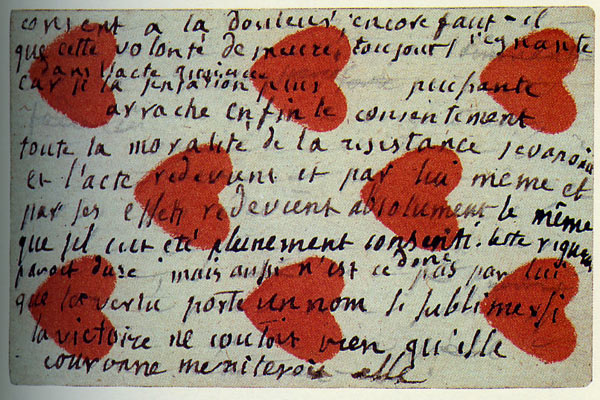 consent a la douleur, encore faut-il
que cette volonté demeure toujours regnante
dans l'acte
car si la sensation plus puissante
arrache enfin le consentement
toute la moralité de la resistance sevanouit
et l'acte redevient et par lui meme et
par ses effets redevient absolument le même
que sil eut été pleinement consenti. Cette rigueur
paroit dure, mais aussi n'est ce donc pas par lui
que la vertu porte un nom si sublime. si
la victoire ne coutoit rien qu'elle
couronne meriteroit elle